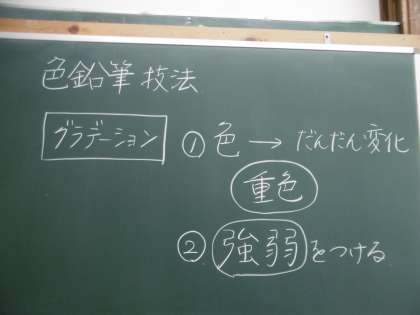 色鉛筆技法
グラデーション ①色→だんだん変化
重色
②強弱をつける